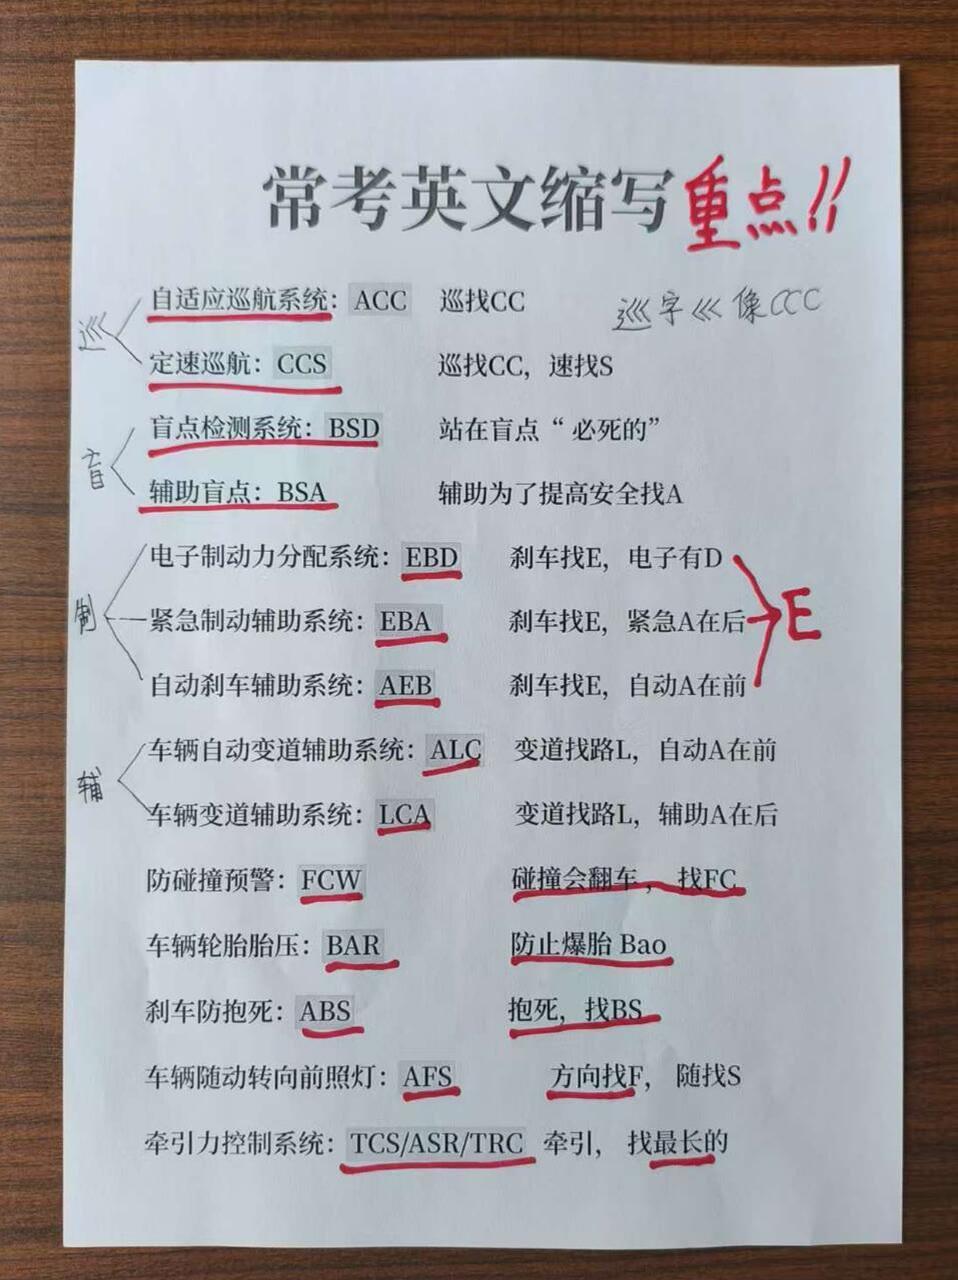 常考英文缩写 重点!!
自适应巡航系统：ACC 巡找CC 巡字巛像CCC
巡
定速巡航：CCS 巡找CC，速找S
盲点检测系统：BSD 站在盲点“必死的”
盲
辅助盲点：BSA 辅助为了提高安全找A
电子制动力分配系统：EBD 刹车找E，电子有D
制 紧急制动辅助系统：EBA 刹车找E，紧急A在后 E
自动刹车辅助系统：AEB 刹车找E，自动A在前
车辆自动变道辅助系统：ALC 变道找路L，自动A在前
辅
车辆变道辅助系统：LCA 变道找路L，辅助A在后
防碰撞预警：FCW 碰撞会翻车，找FC
车辆轮胎胎压：BAR 防止爆胎 Bao
刹车防抱死：ABS 抱死，找BS
车辆随动转向前照灯：AFS 方向找F，随找S
牵引力控制系统：TCS/ASR/TRC 牵引，找最长的